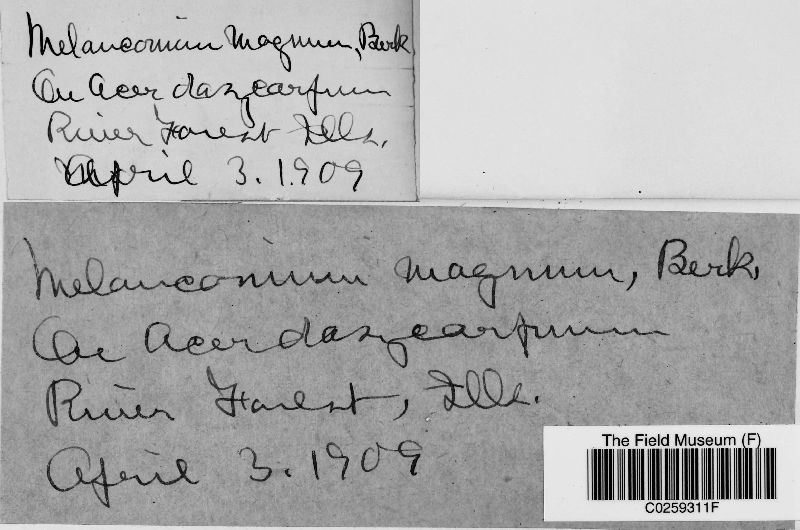 Melanconium magnum, Berk
On Acer dasycarpum
River Forest Ills.
April 3. 1909
Melanconium magnum, Berk.
On Acer dasycarpum
River Forest, Ills.
April 3. 1909
The Field Museum (F)
C0259311F